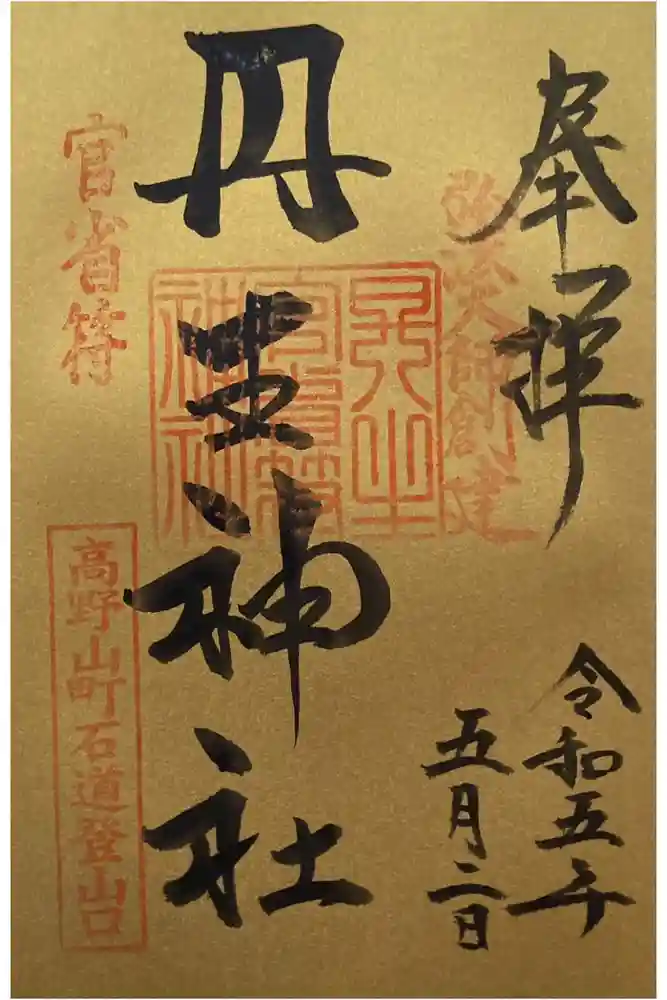 奉拝
弘法大師創建
令和五年
五月二日
丹生神社
丹生
官省符
神社
官省符
高野山町石道登山口